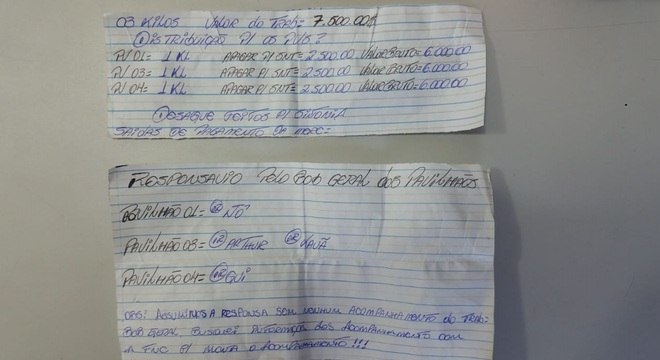 03 KILOS VALOR DO TRAB= 7.500.00$
DISTRIBUIÇÃO P/ OS P/S?
P/ 01= 1 KL APAGAR P/ SNT= 2.500.00 VALOR BRUTO= 6.000.00
P/ 03= 1 KL APAGAR P/ SNT= 2.500.00 VALOR BRUTO= 6.000.00
P/ 04= 1 KL APAGAR P/ SNT= 2.500.00 VALOR BRUTO= 6.000.00
P/ SINTONIA
SAIDAS DE PAGAMENTO DA
RESPONSAVIO PELO BOB GERAL DOS PAVILHÃOS
PAVILHÃO 01= @ NTÔ
PAVILHÃO 03= @ ARTHUR @ KAUÃ
PAVILHÃO 04= @ GUI
OBS: ASSUMIMOS A RESPONSA SEM NENHUM ACOMPANHAMENTO DO TRAB:
BOB GERAL BUSQUEI INFORMAÇÃO DOS ACOMPANHAMENTO COM
A P/ MONTA O ACOMPANHAMENTO!!!